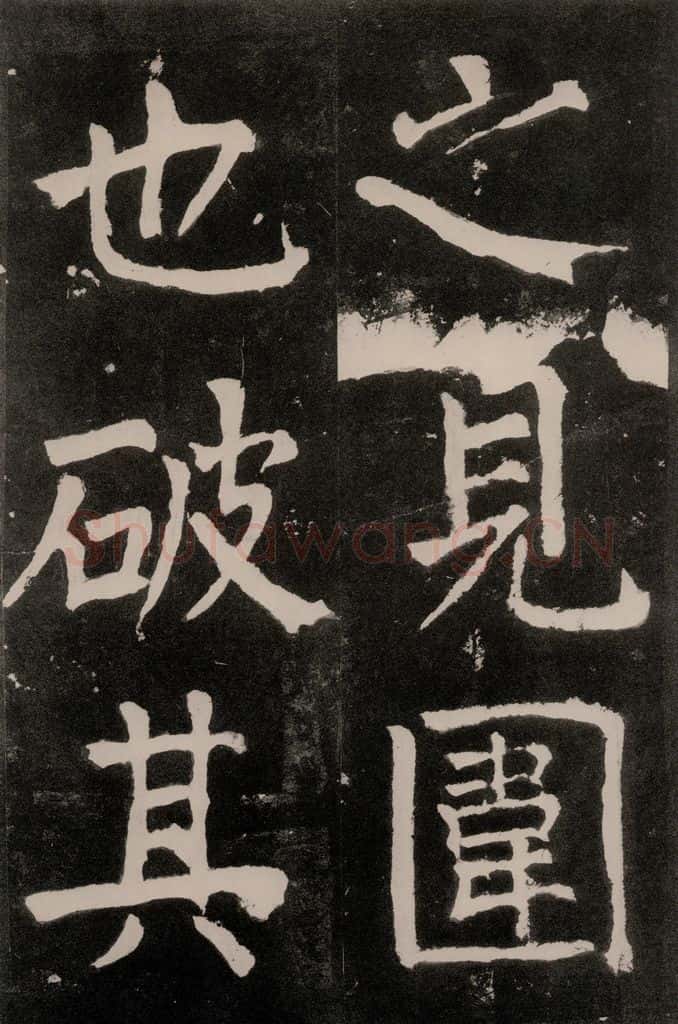 之見圍
也破其
Shufawang.CN